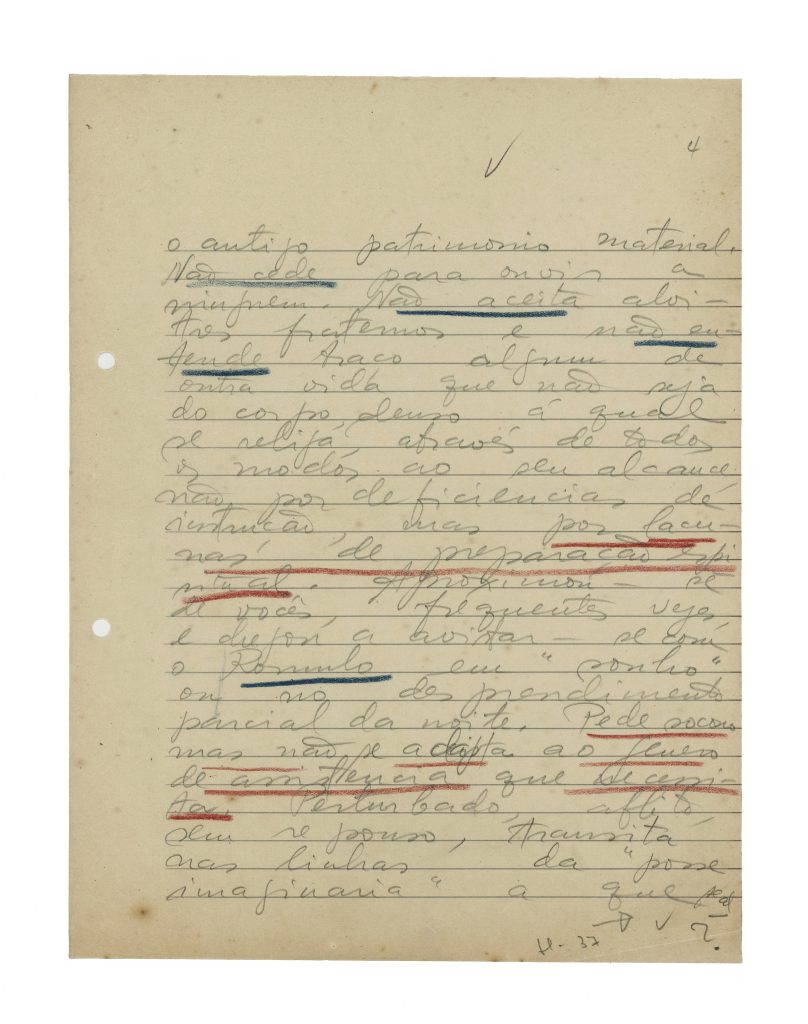 4
o antigo patrimonio material.
Não cede para ouvir a
ninguem. Não aceita alvi-
tres fraternos e não en-
tende traço algum de
outra vida que não seja
do corpo denso á qual
se religa, através de todos
os modos ao seu alcance
não por deficiencias de
instrucão, mas por lacu-
nas de preparação espi
ritual. Aproximou-se
de vocês, frequentes vezes
e chegou a avistar-se com
o Romulo em "sonho"
ou no desprendimento
parcial da noite. Pede socorro
mas não se adapta ao genero
de assistencia que necessi-
ta. Perturbado, aflito,
sem repouso, transita
nas linhas da "posse
imaginaria" a que
H-37 ?